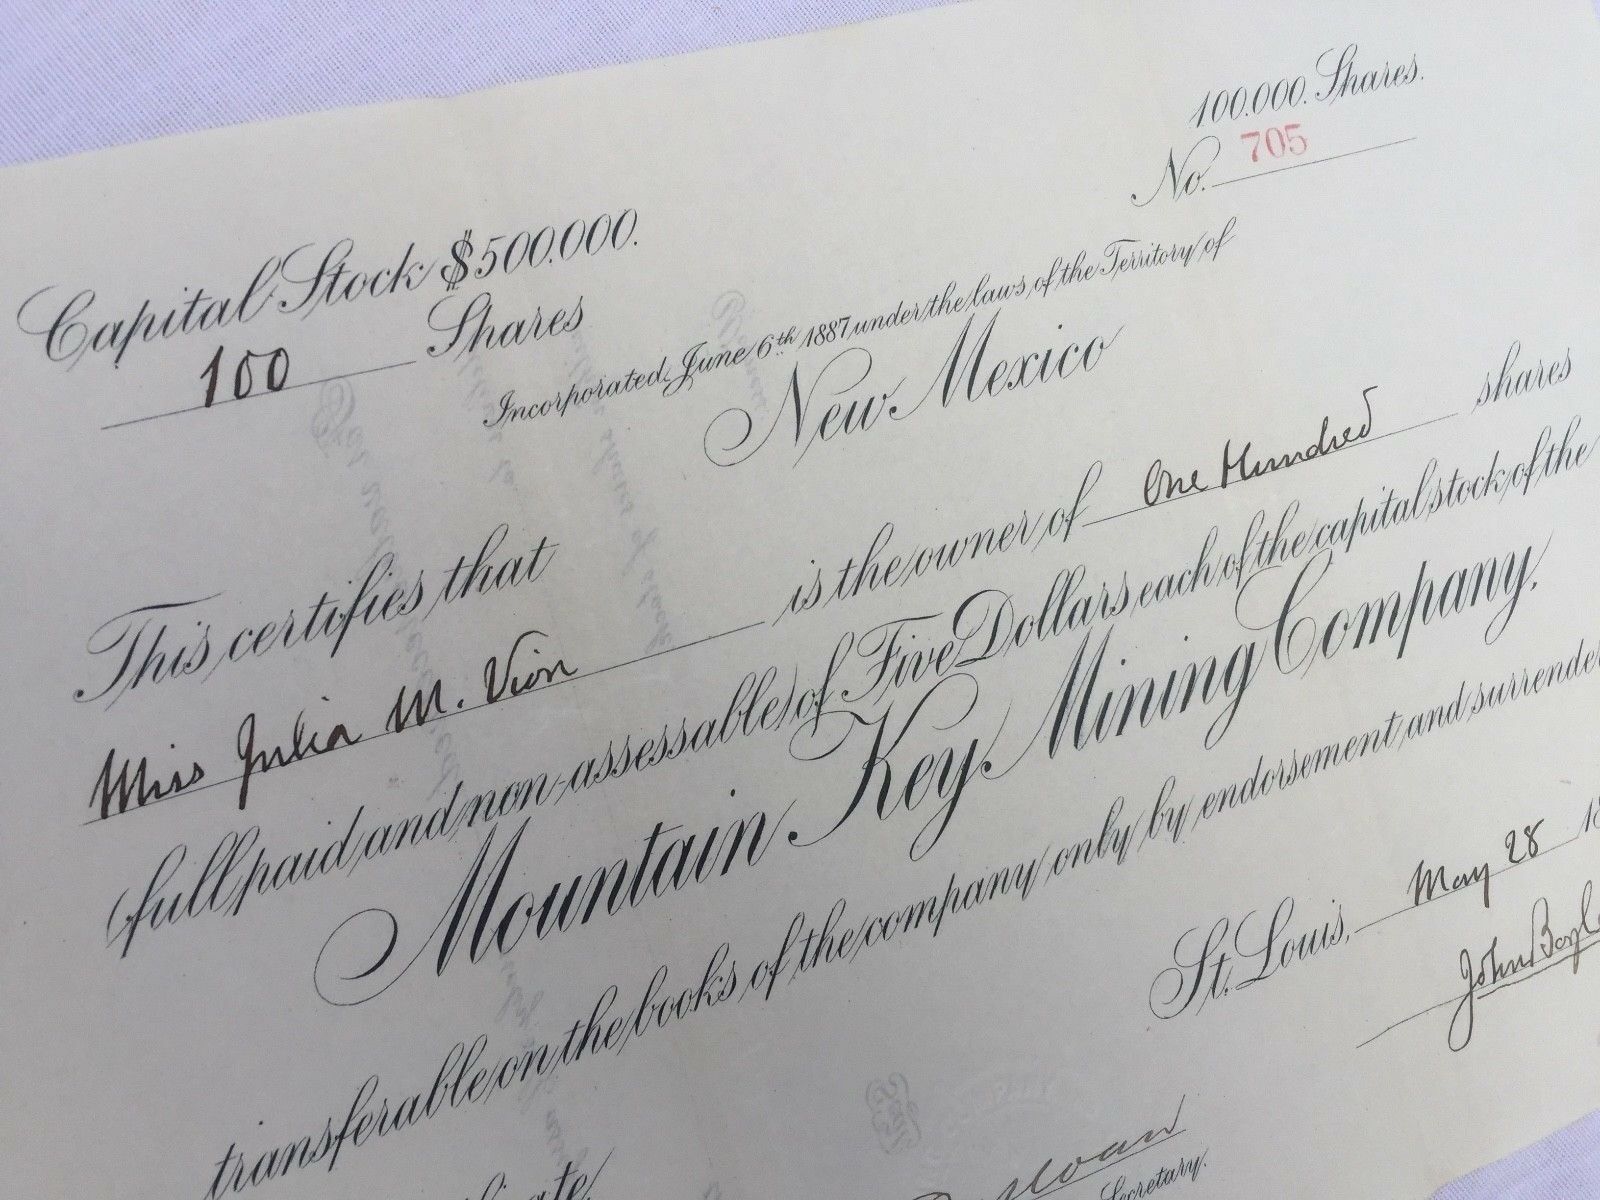 100.000. Shares.
No. 705
Capital Stock $500.000.
100 Shares
Incorporated June 6th 1887 under the laws of the Territory of
New Mexico
This certifies that
Miss Julia M. Vion is the owner of One Hundred shares
(full paid and non-assessable) of Five Dollars each of the capital stock of the
Mountain Key Mining Company.
transferable on the books of the company only by endorsement and surrender
St. Louis, May 28 18
John
Sloan
Secretary.